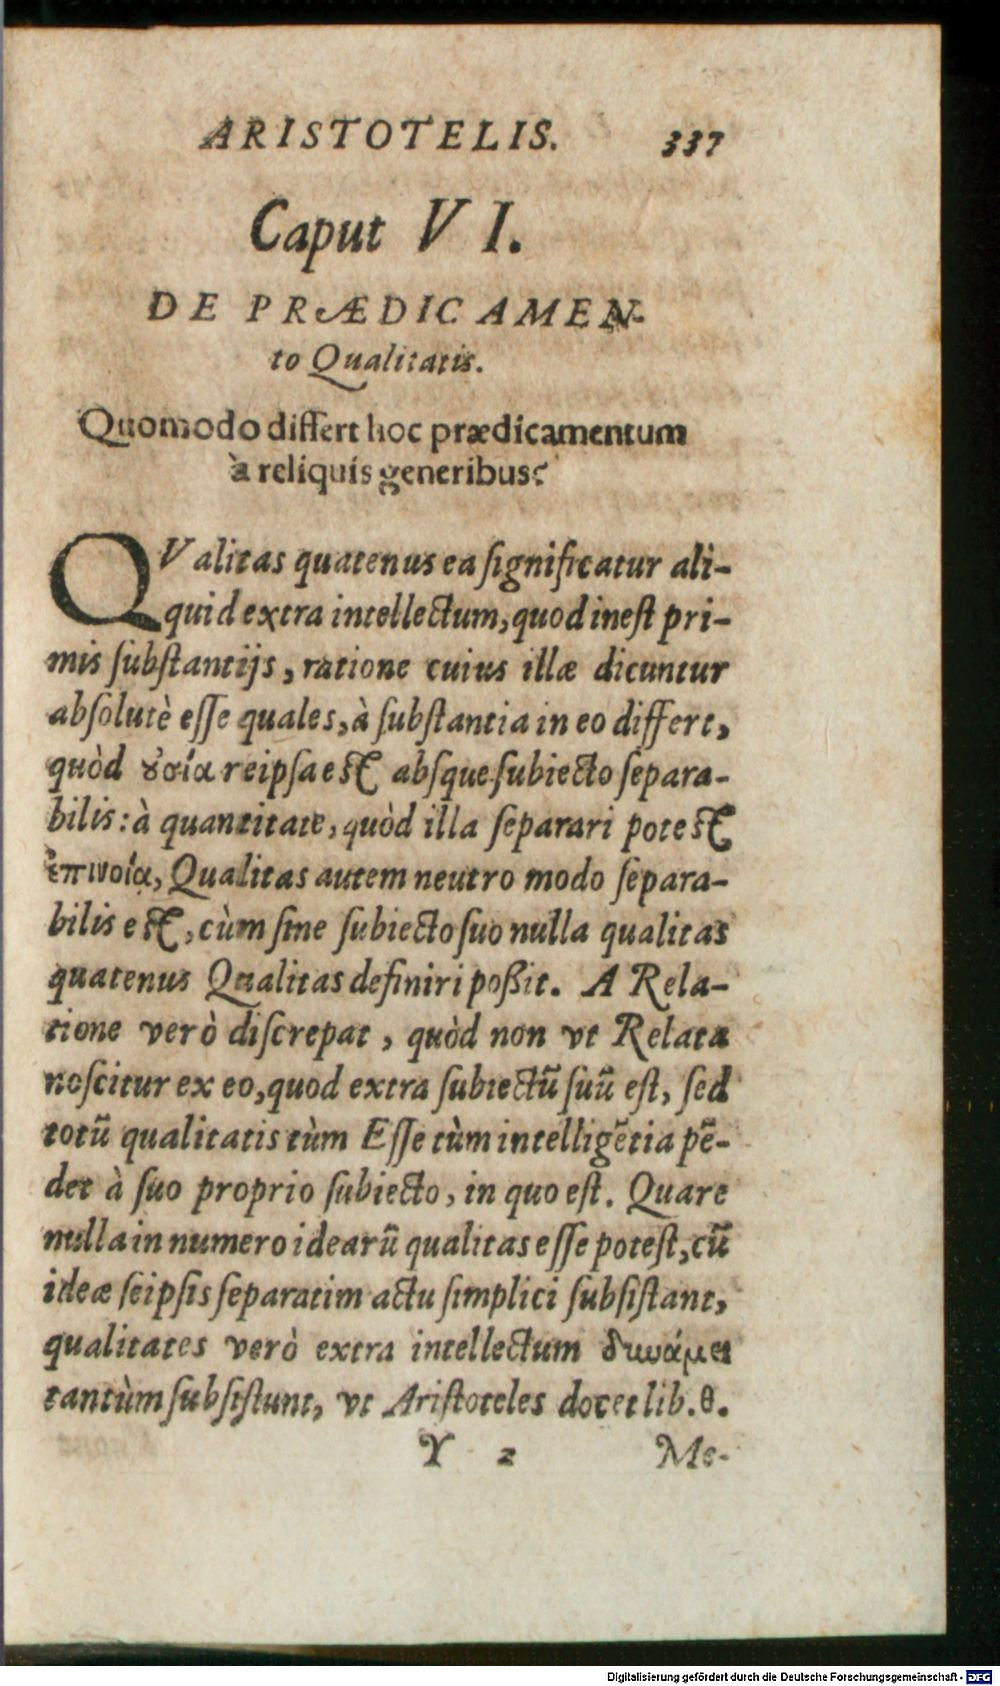 ARISTOTELIS. 337
Caput VI.
DE PRÆDICAMEN-
to Qualitatis.
Quomodo differt hoc prædicamentum
à reliquis generibus?
QValitas quatenus ea ſignificatur ali-
quid extra intellectum, quod ineſt pri-
mis ſubſtantijs, ratione cuius illæ dicuntur
abſolutè eſſe quales, à ſubſtantia in eo differt,
quòd ȣ̓σία reipſa eſt abſque ſubiecto ſepara-
bilis: à quantitate, quòd illa ſeparari poteſt
ἐπινοίᾳ, Qualitas autem neutro modo ſepara-
bilis eſt, cùm ſine ſubiecto ſuo nulla qualitas
quatenus Qualitas definiri poßit. A Rela-
tione verò diſcrepat, quòd non vt Relata
noſcitur ex eo, quod extra ſubiectũ ſuũ eſt, ſed
totũ qualitatis tùm Eſſe tùm intelligẽtia pẽ-
det à ſuo proprio ſubiecto, in quo eſt. Quare
nulla in numero idearũ qualitas eſſe poteſt, cũ
ideæ ſeipſis ſeparatim actu ſimplici ſubſiſtant,
qualitates verò extra intellectum δυνάμει
tantùm ſubſiſtunt, vt Ariſtoteles docet lib. θ.
Y 2 Me-
Digitalisierung gefördert durch die Deutsche Forschungsgemeinschaft - DFG